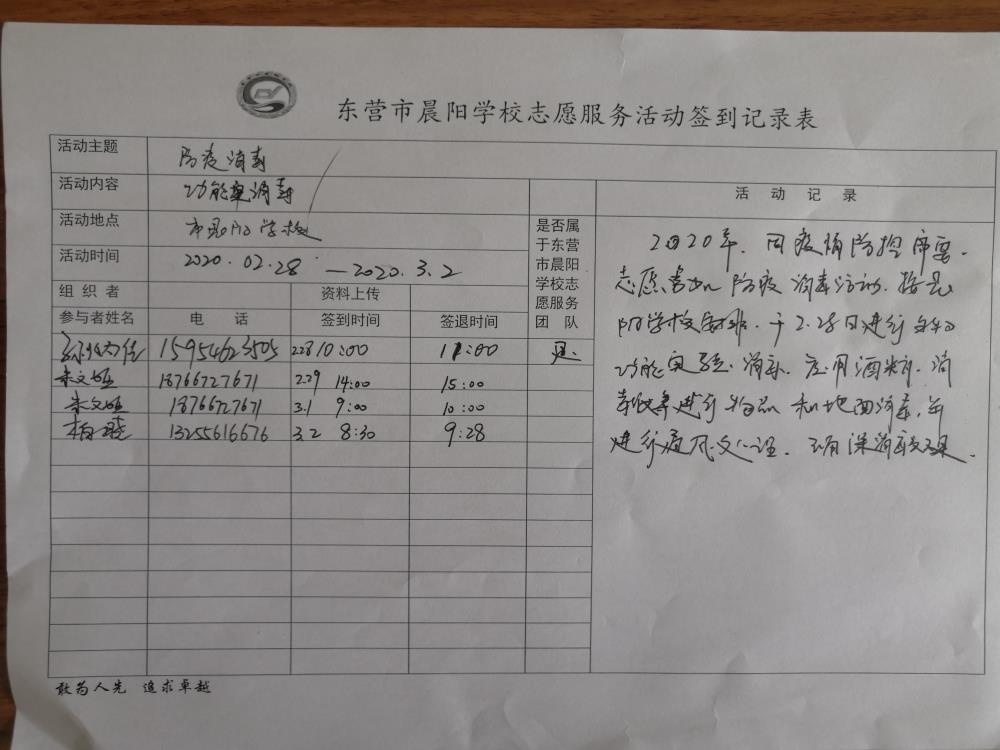 东营市晨阳学校志愿服务活动签到记录表
活动主题 防疫消毒
活动内容 功能室消毒
活动地点 市晨阳学校
活动时间 2020.02.28 — 2020.3.2
组织者 资料上传
参与者姓名 电话 签到时间 签退时间
是否属于东营市晨阳学校志愿服务团队
15954623505 2.28 10:00 11:00 是
朱文 18766727671 2.29 14:00 15:00
朱文 18766727671 3.1 9:00 10:00
柏 13255616676 3.2 8:30 9:28
活动记录
2020年,因疫情防控需要,
志愿者 防疫消毒活动.按晨
阳学校安排,于2.28日进行
功能室 消毒.应用酒精,消
进行物品和地面消毒,并
进行通风
敢为人先 追求卓越